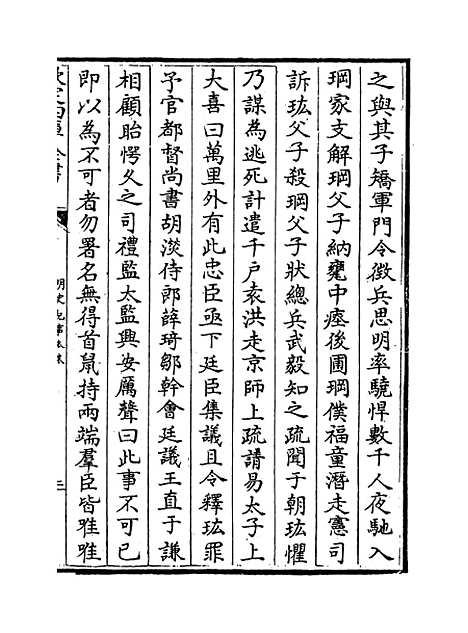 之與其子矯軍門令徵兵思明率驍悍數千人夜馳入
㺬家支解㺬父子納甕中瘞後圃㺬僕福童潛走憲司
訴竑父子殺㺬父子狀總兵武毅知之疏聞于朝竑懼
乃謀為逃死計遣千戸袁洪走京師上疏請易太子上
大喜曰萬里外有此忠臣亟下廷臣集議且令釋竑罪
予官都督尚書胡濙侍郎薛琦鄒幹會廷議王直于謙
相顧眙愕久之司禮監太監興安厲聲曰此事不可已
即以為不可者勿署名無得首鼠持兩端羣臣皆唯唯
欽定四庫全書
明史紀事本末
三